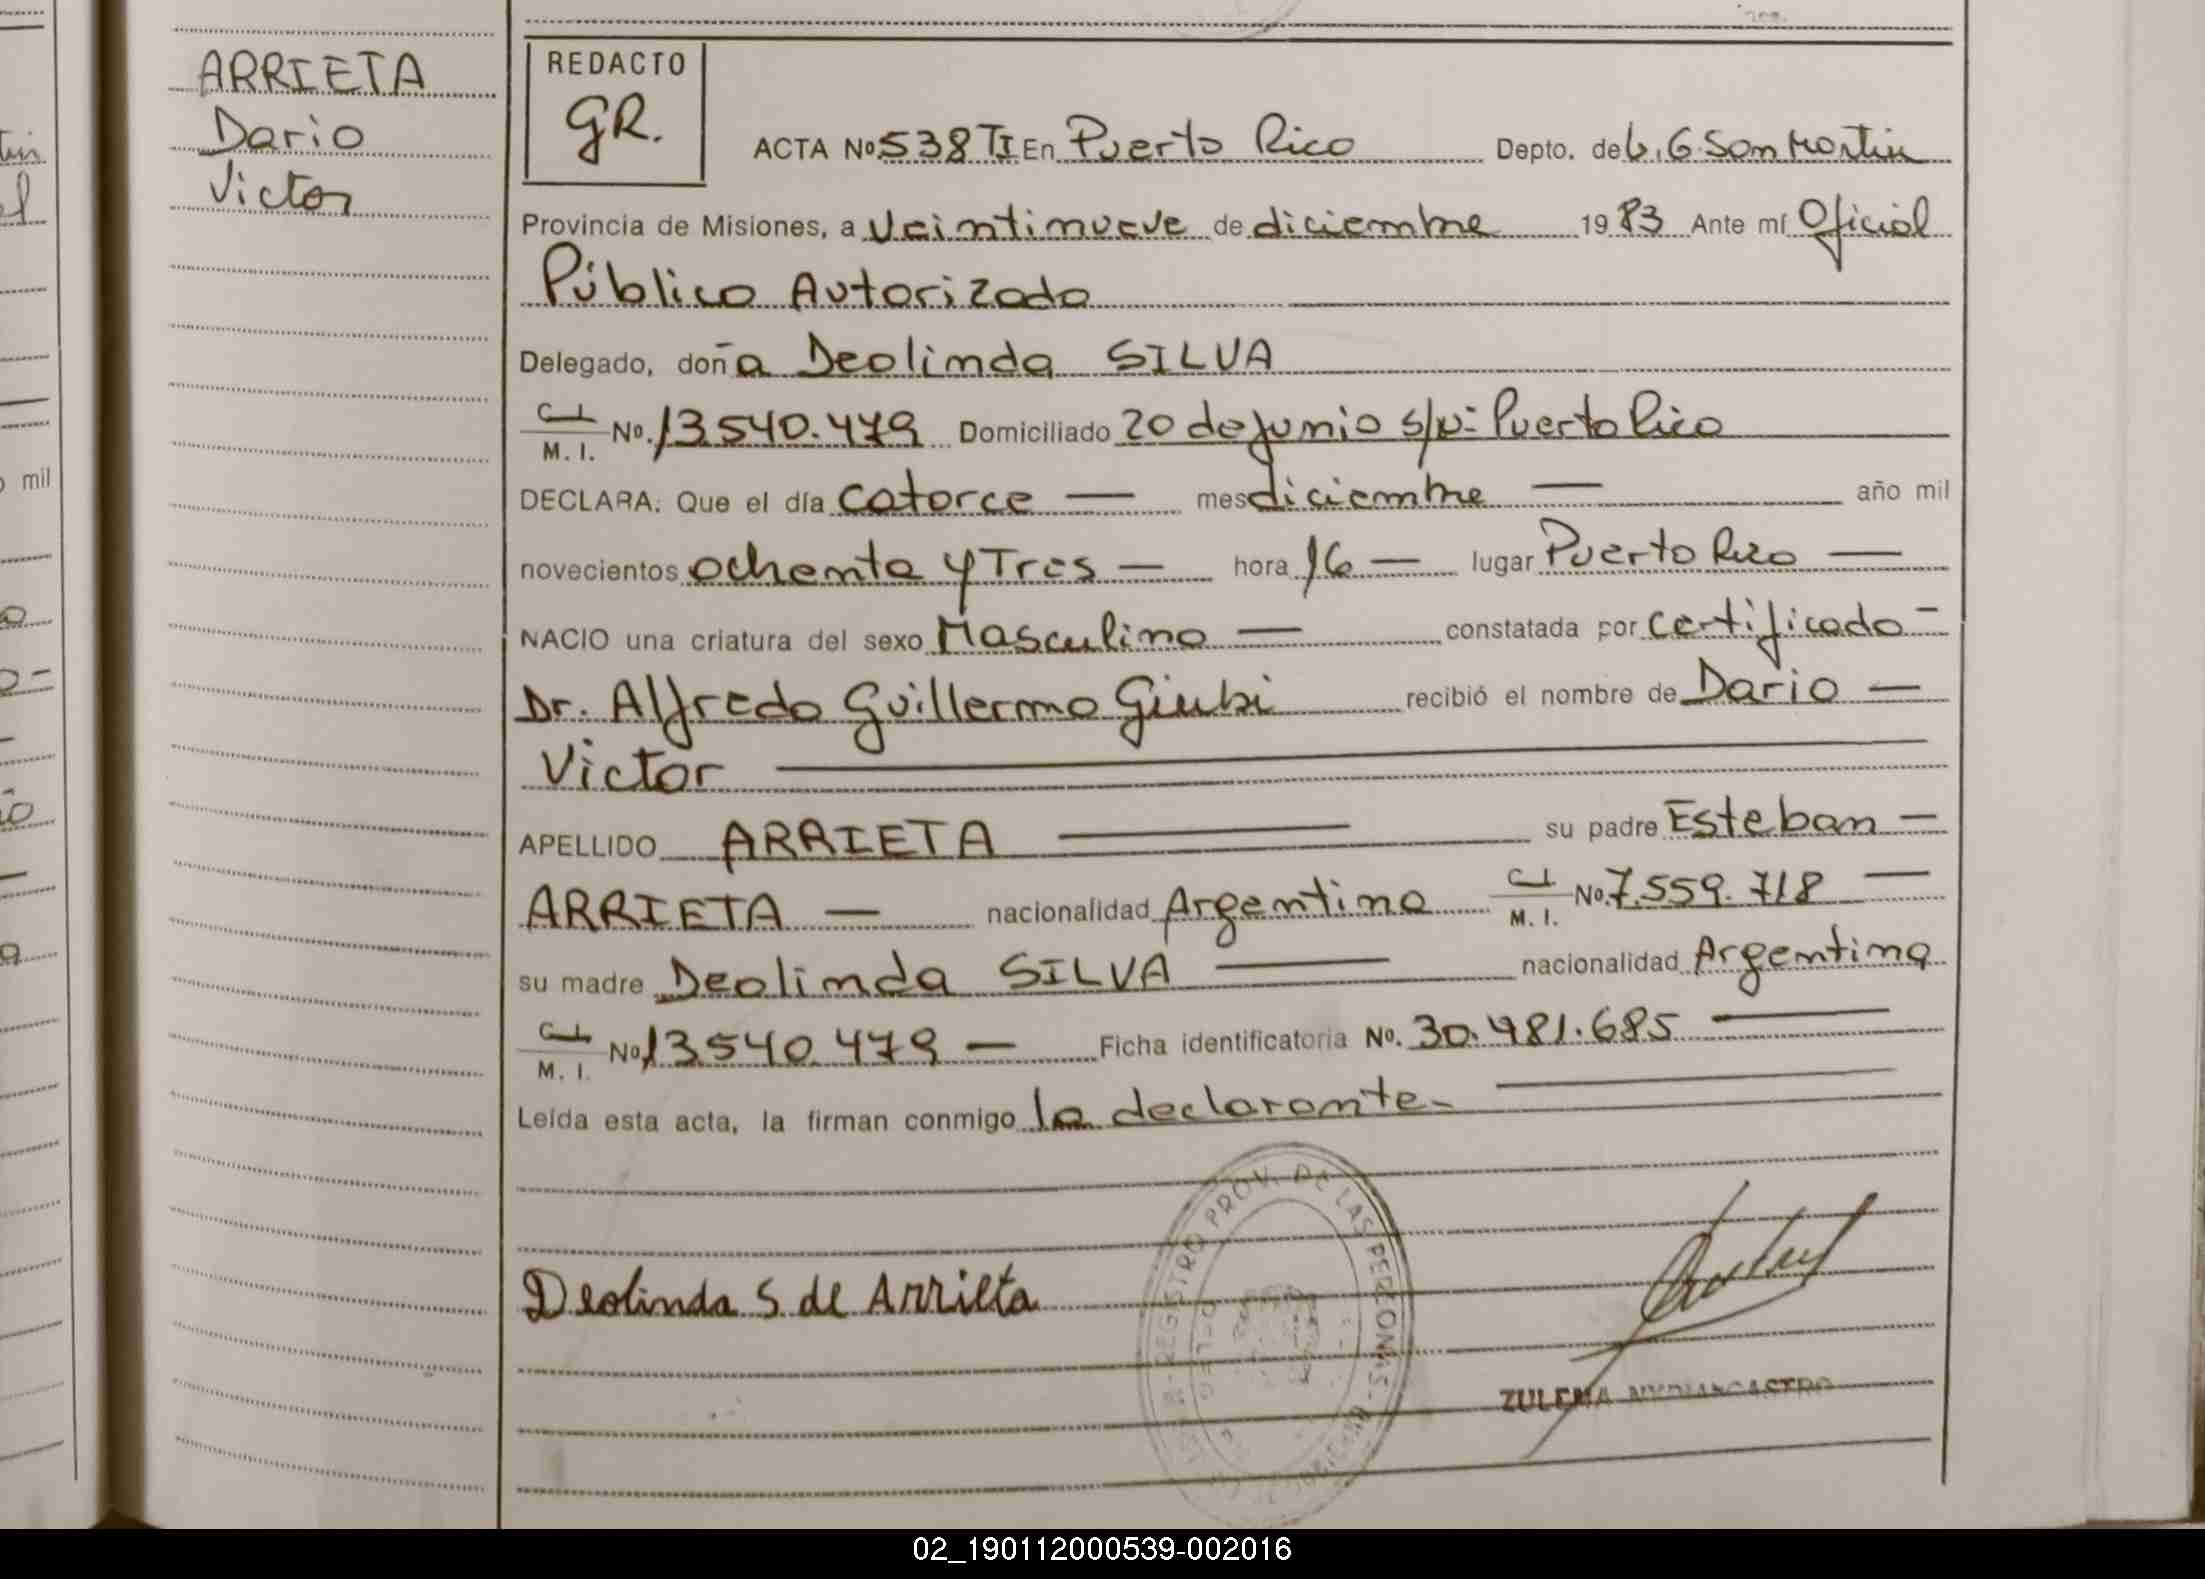 ARRIETA
Dario
Victor
REDACTO
GR.
ACTA No. 538 TI En Puerto Rico Depto. de L. G. San Martin
Provincia de Misiones, a veintinueve de diciembre 1983 Ante mí Oficial
Público Autorizado
Delegado, doña Deolinda SILVA
C.I. M. I. No. 13.540.479 Domiciliado 20 de junio s/n: Puerto Rico
DECLARA: Que el día catorce — mes diciembre — año mil
novecientos ochenta y Tres — hora 16 — lugar Puerto Rico —
NACIO una criatura del sexo Masculino — constatada por certificado -
Dr. Alfredo Guillermo Giubi recibió el nombre de Dario —
Victor
APELLIDO ARRIETA — su padre Esteban —
ARRIETA — nacionalidad Argentina C.I. M. I. No. 7.559.718 —
su madre Deolinda SILVA — nacionalidad Argentina
C.I. M. I. No. 13.540.479 — Ficha identificatoria No. 30.981.685 —
Leída esta acta, la firman conmigo la declarante.-
REGISTRO PROV. DE LAS PERSONAS
Deolinda S. de Arrieta
ZULEMA
mil
02_190112000539-002016